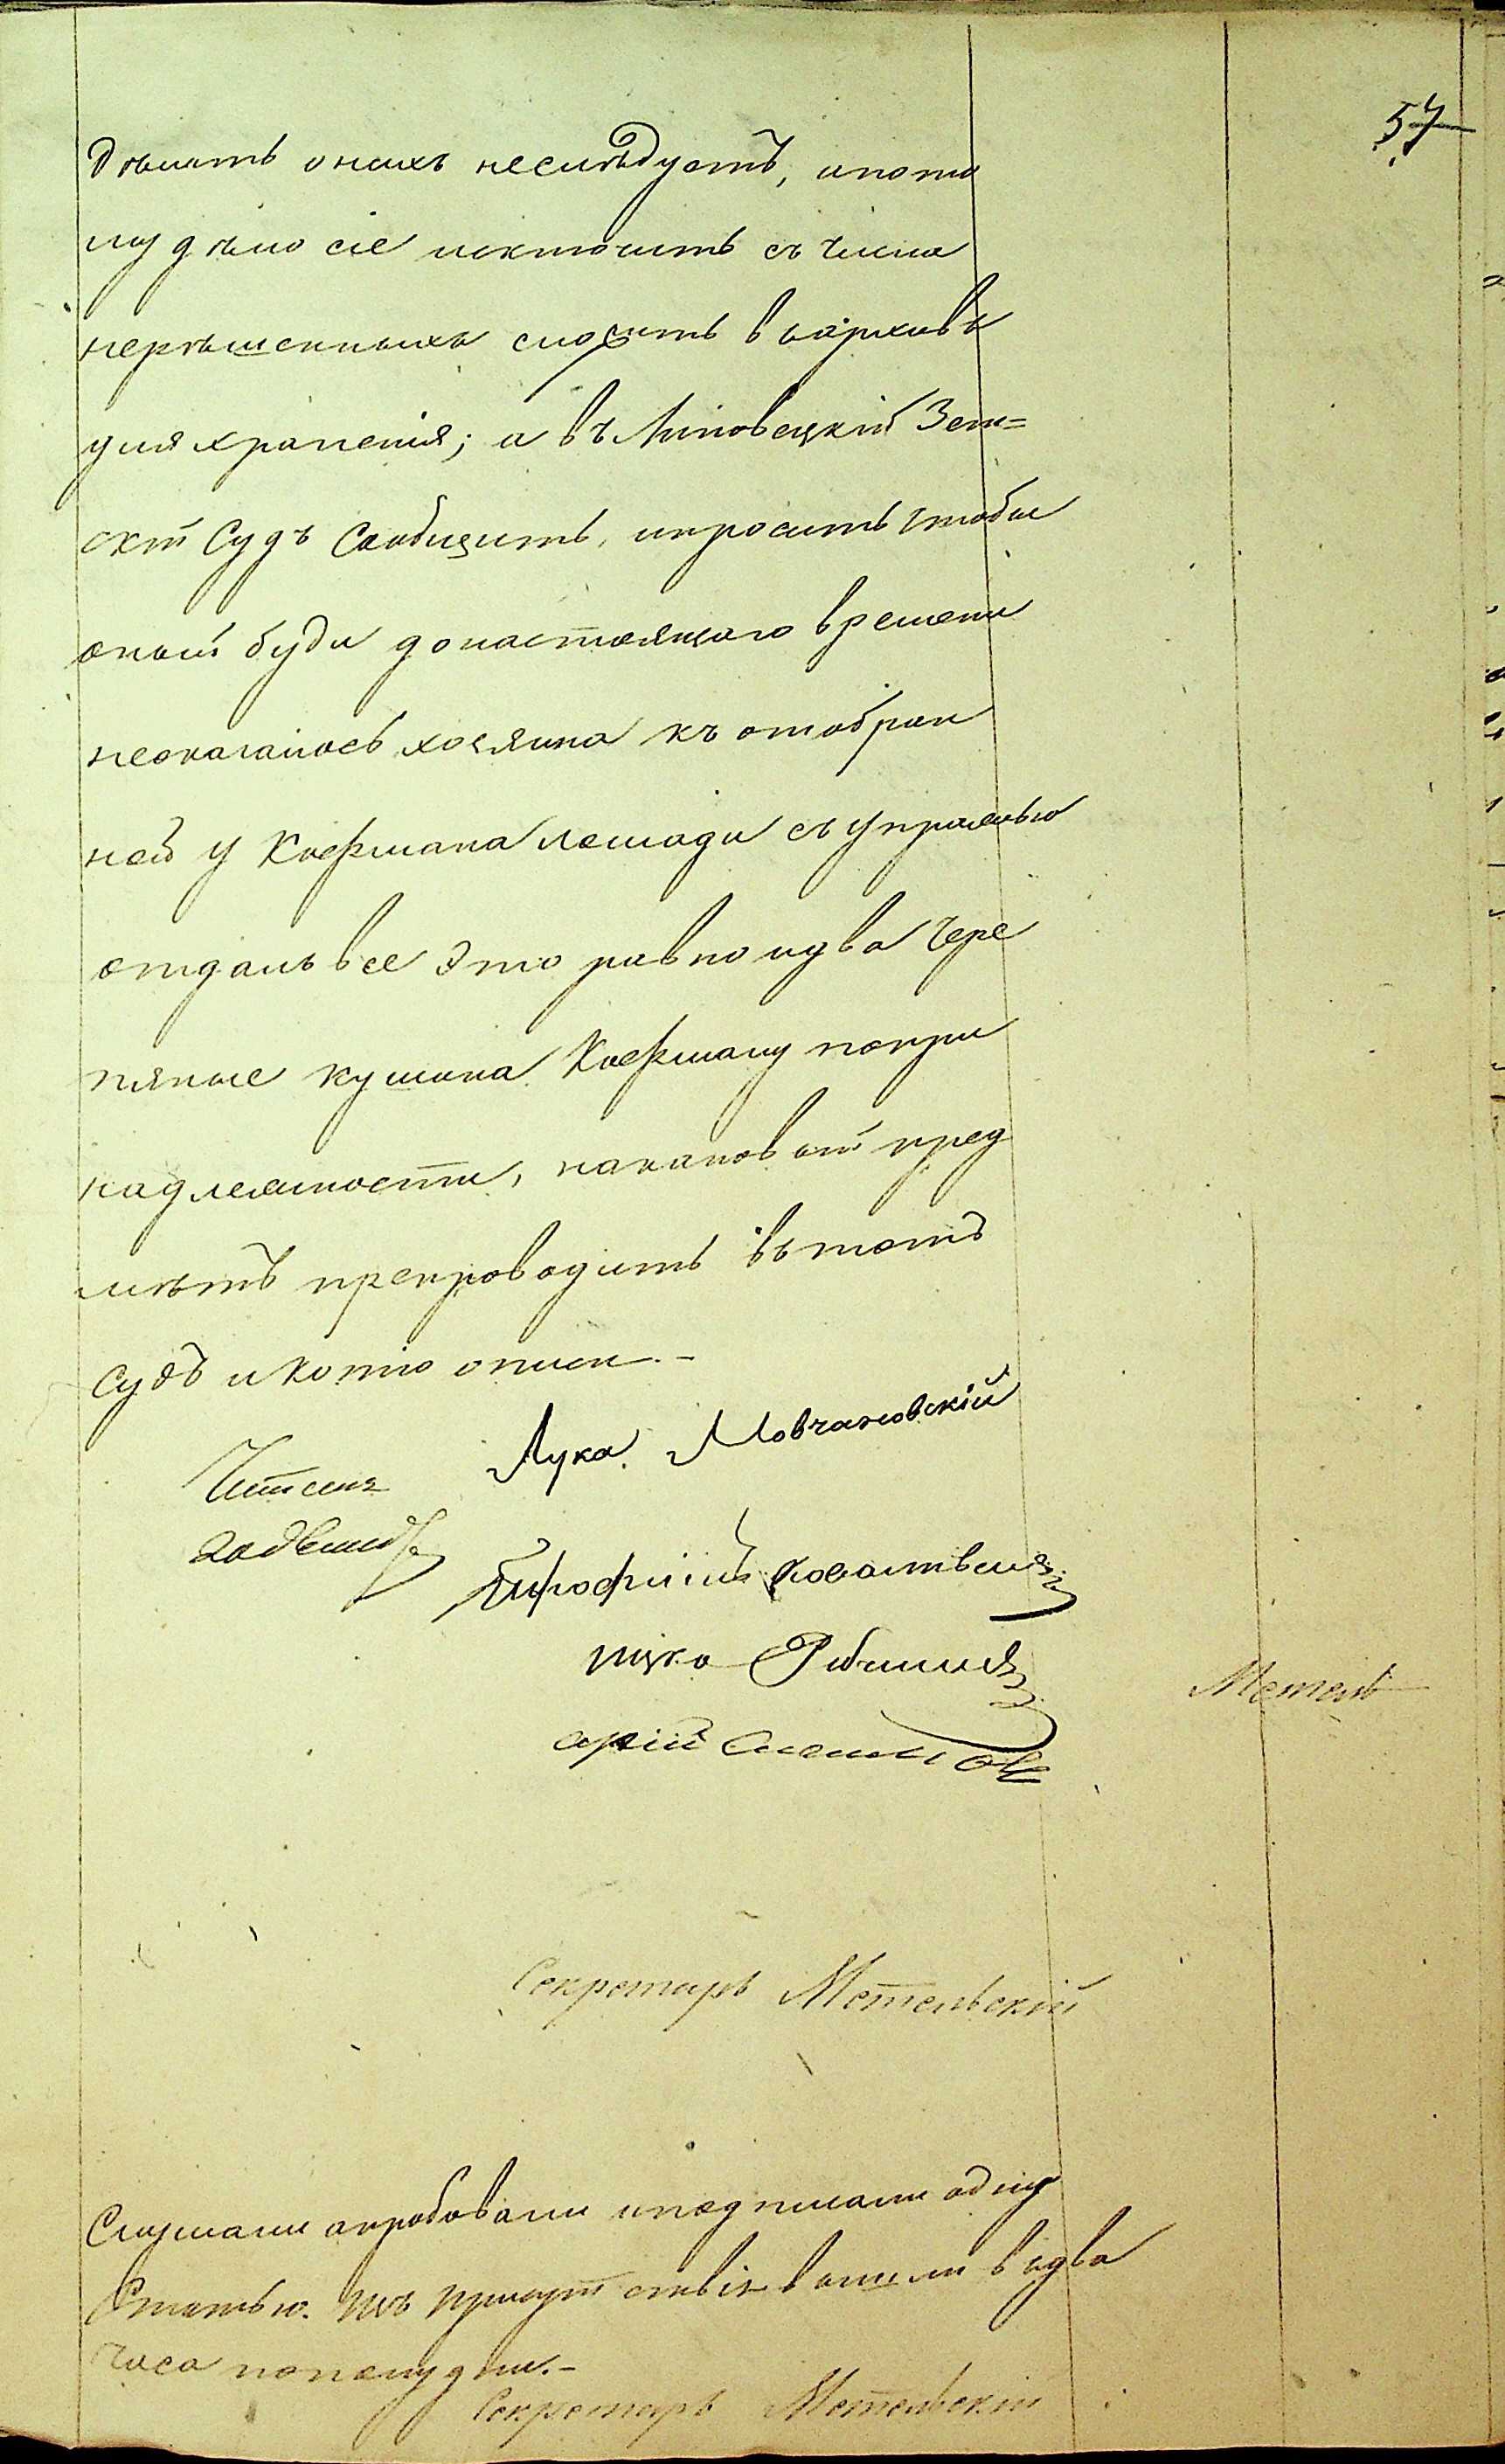 57
дѣлать оныхъ неслѣдуетъ,ипото
му дѣло сіе исключить съ числа
нерѣшенныхъ сложить въархивъ
дляхраненія; а въ Липовецкій Зем=
скій Судъ Сообщить, ипросить чтобы
оный буди донастоящаго времени
неоказалось хозяина къ отобран
ной у Кофмана лошади съ упряжью
отдалъ все это равно идва чере
пяные кушина Кофману попри
надлежности, каковый пред
мѣтъ препроводить въ тотъ
Судъ и копію описи.-
Лука Мовчановскій
Читалъ

Метель
Секретарь Метельскій
Слушали апробовали иподписали одну
Статью. Изъ присутствія вышли въ два
часа пополудни.-
Секретарь Метельскій